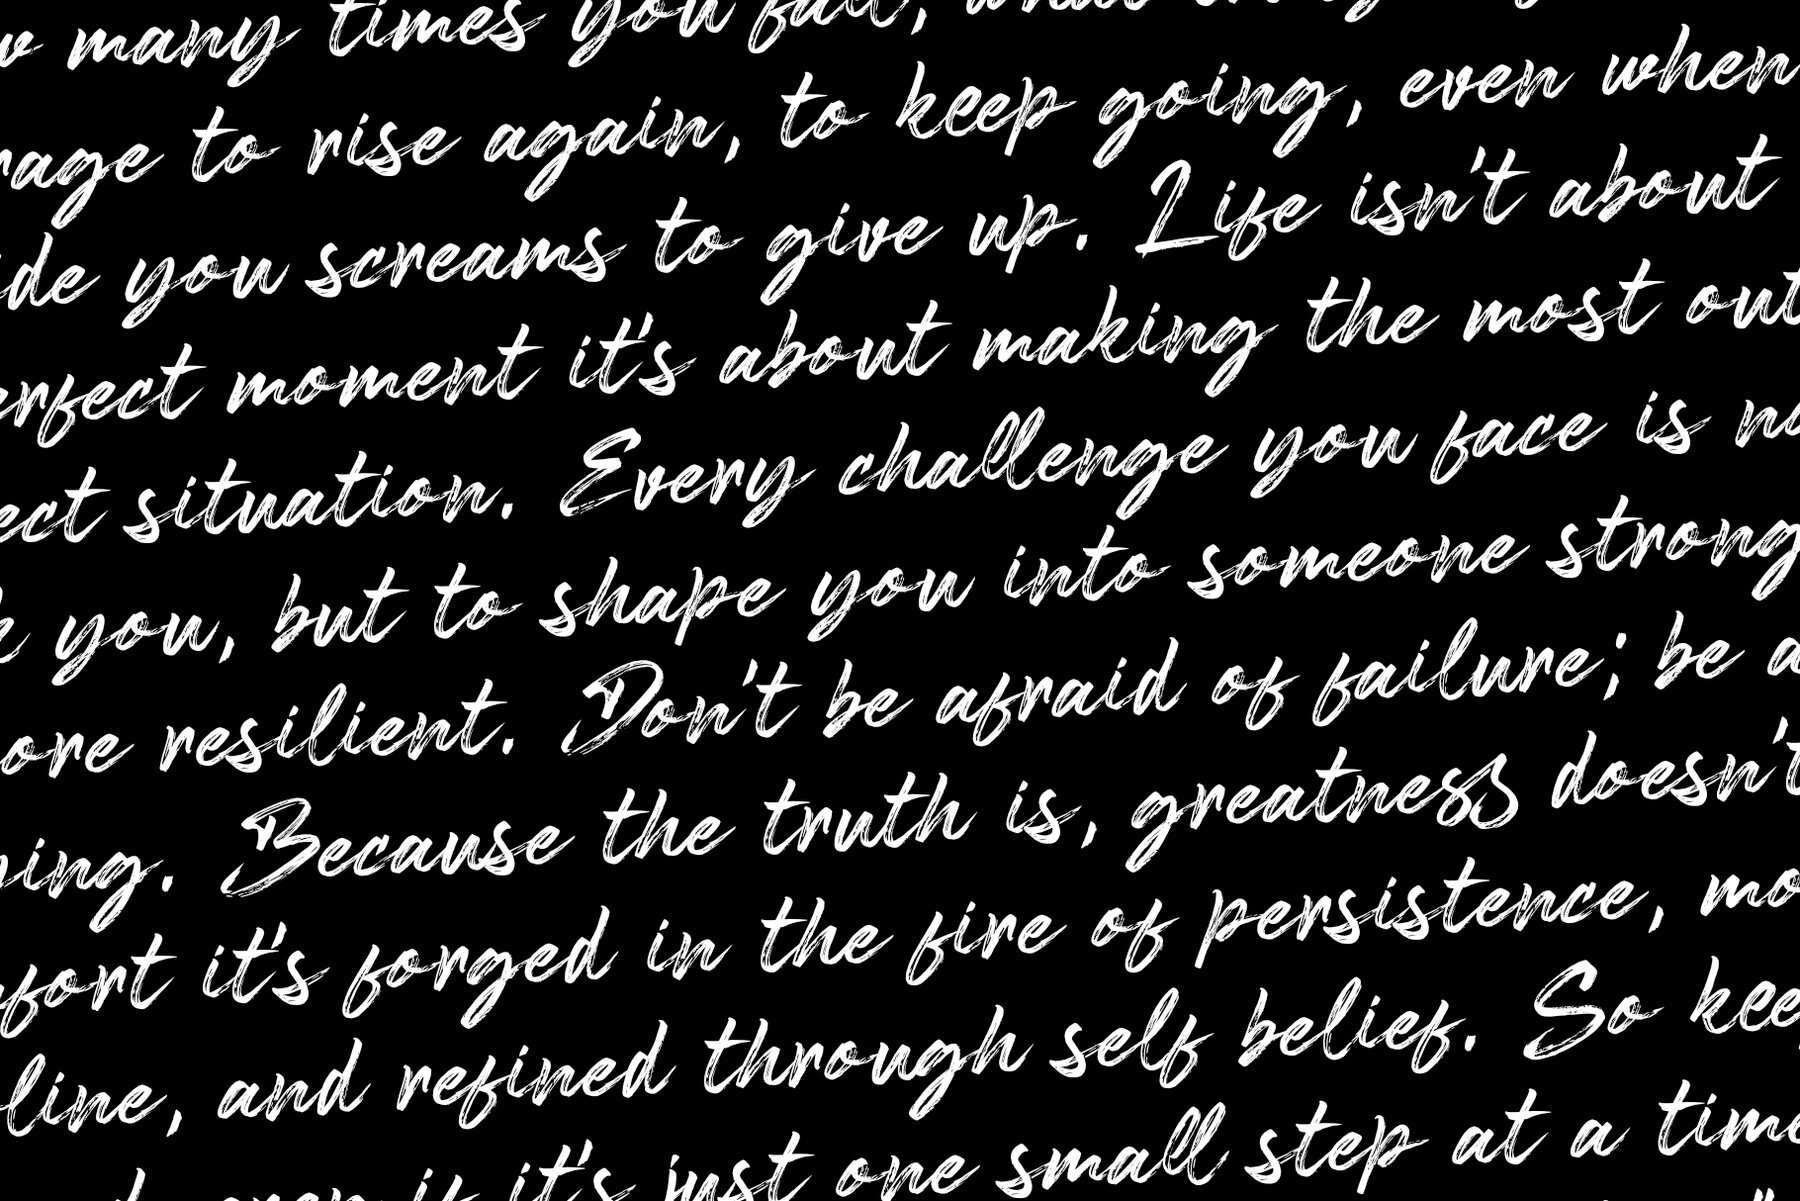 w many times you fall, what
rage to rise again, to keep going, even when
ide you screams to give up. Life isn't about
erfect moment it's about making the most out
ect situation. Every challenge you face is no
k you, but to shape you into someone strong
ore resilient. Don't be afraid of failure; be a
ning. Because the truth is, greatness doesn't
fort it's forged in the fire of persistence, mo
line, and refined through self belief. So kee
even if it's just one small step at a time